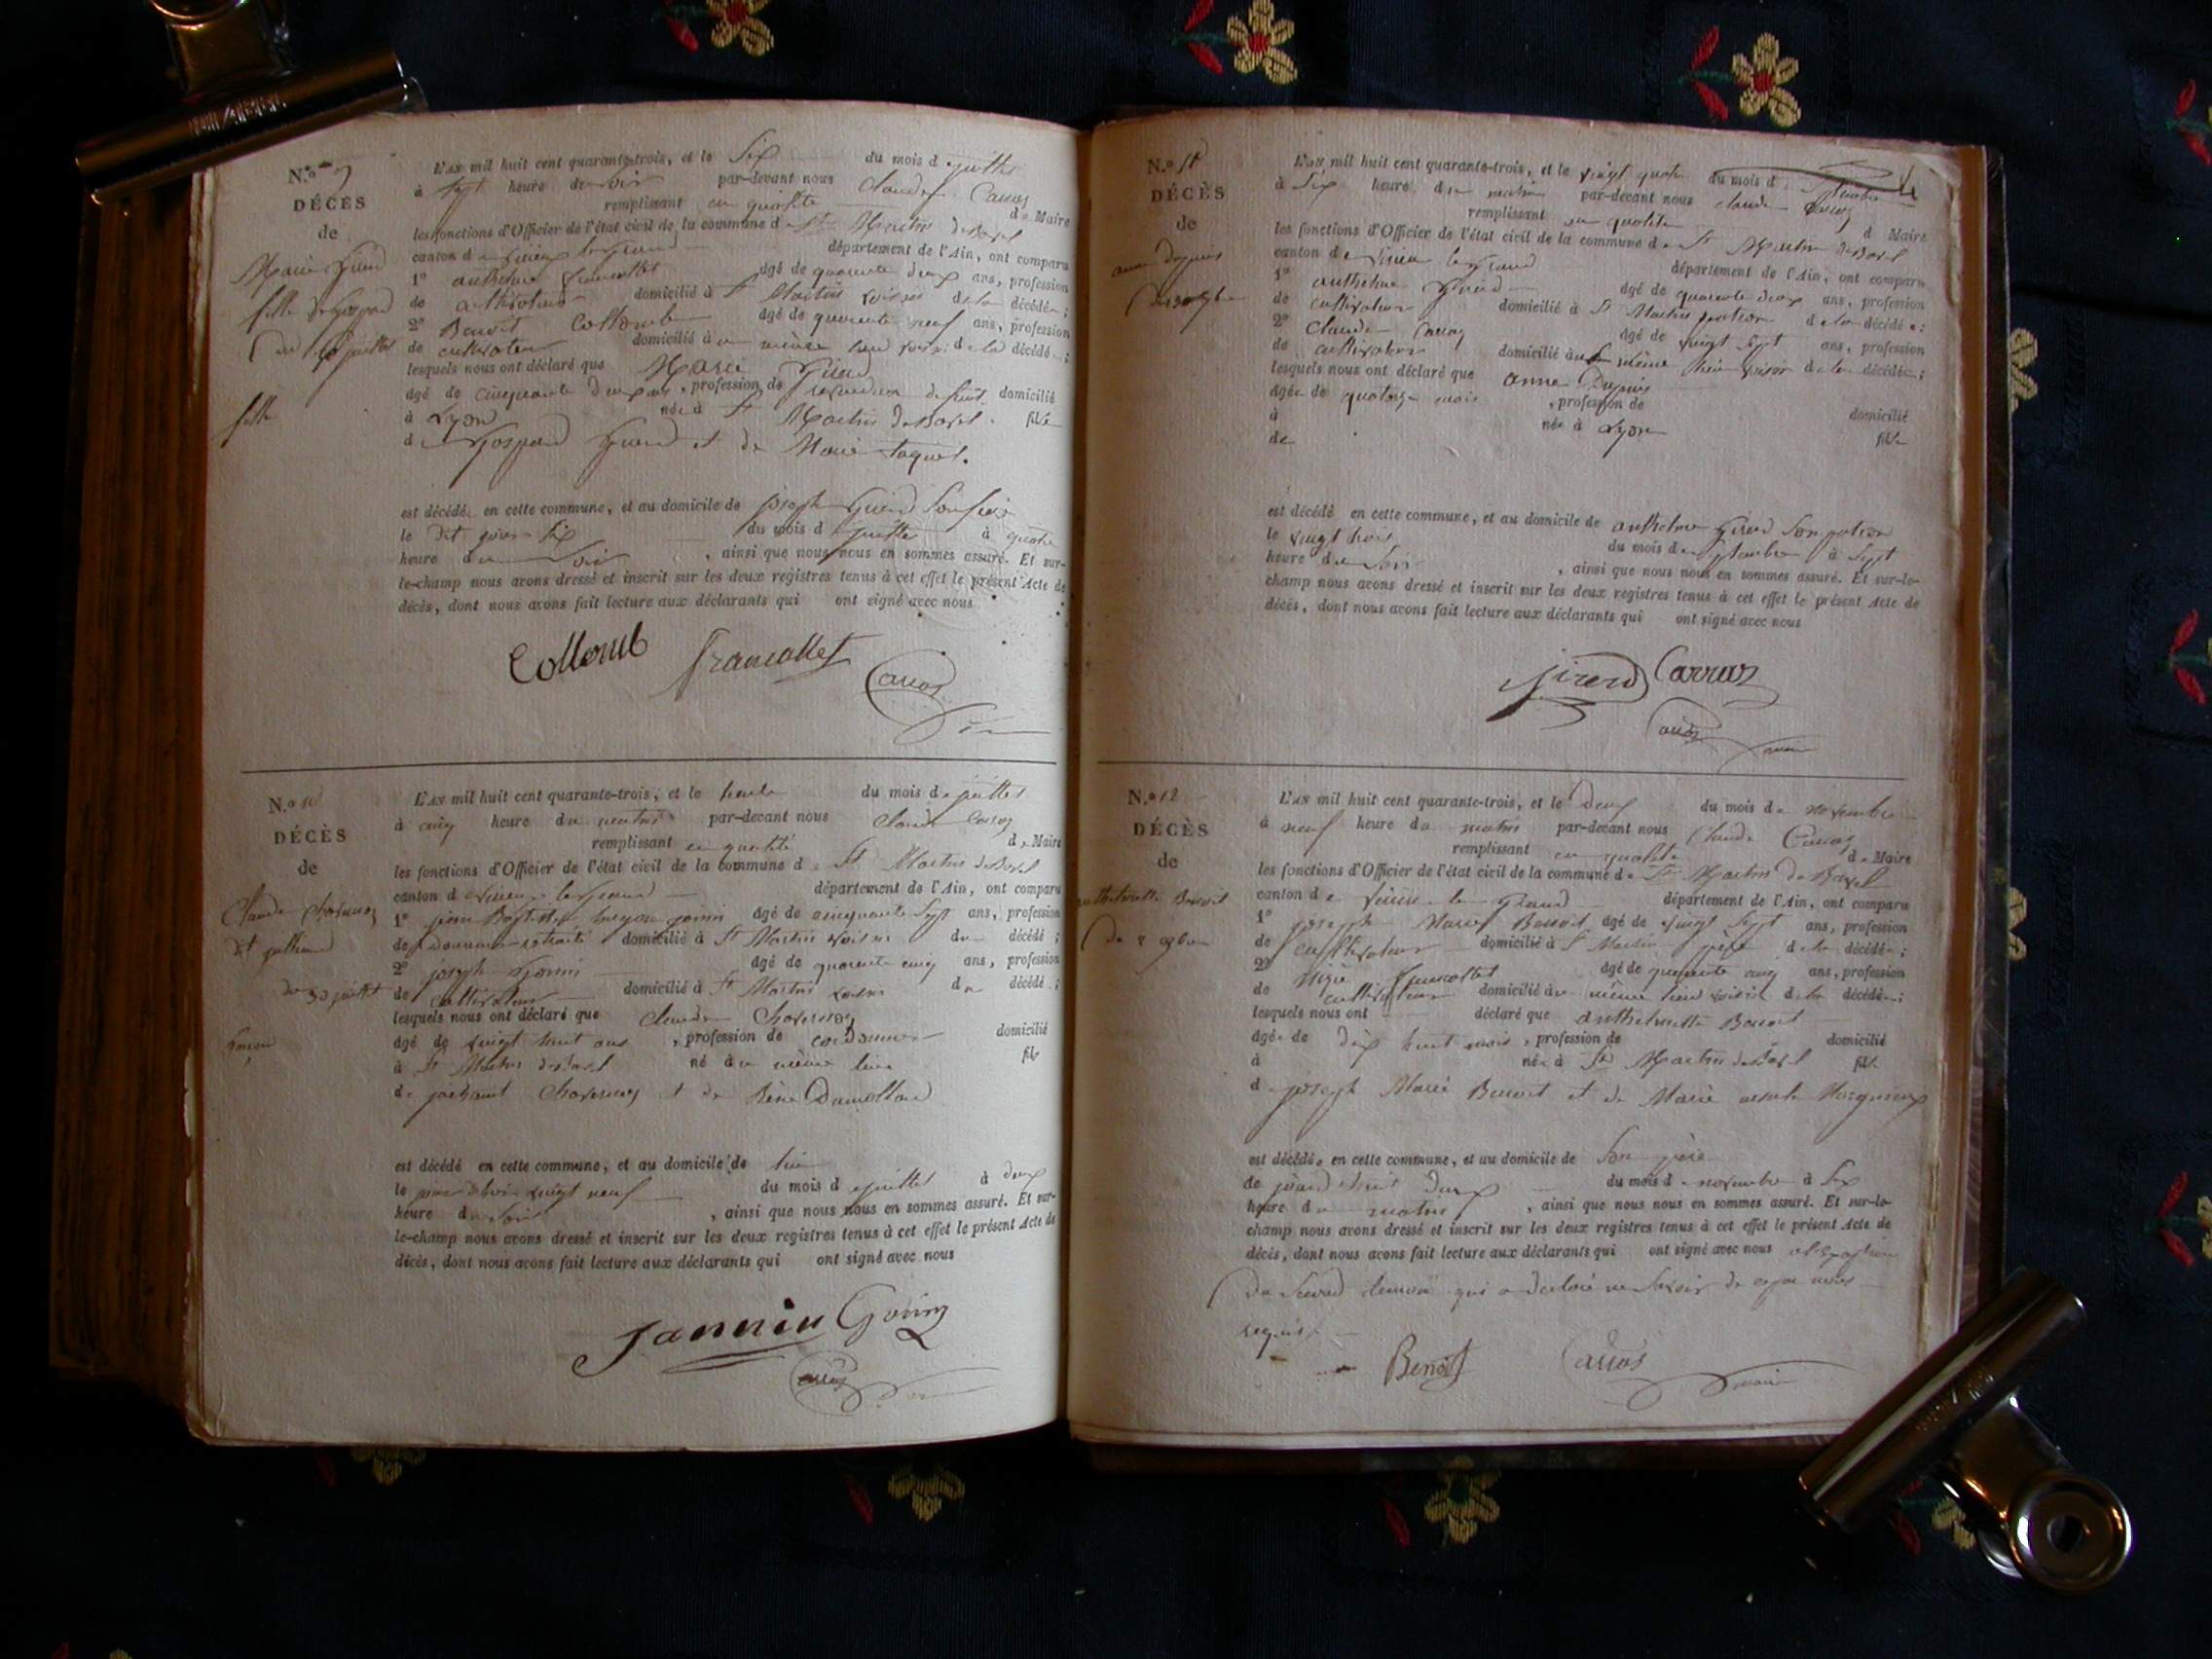 N.º 9
DÉCÈS
de
Marie Girud
fille de Gaspard
du 6 juillet
fille
L'AN mil huit cent quarante-trois, et le Six du mois de juillet
à Sept heure du Soir par-devant nous Claude Carroz
remplissant en qualité de Maire
les fonctions d'Officier de l'état civil de la commune de St Martin de Bavel
canton de Virieu le Grand département de l'Ain, ont comparu
1º anthelme francollet âgé de quarante deux ans, profession
de cultivateur domicilié à St Martin voisin de la décédée ;
2º Benoit Collomb âgé de quarante neuf ans, profession
de cultivateur domicilié au même lieu voisin de la décédée ;
lesquels nous ont déclaré que Marie Girud
âgé de cinquante deux ans, profession de domicilié
à Lyon née à St Martin de Bavel fille
de Gaspard Girud et de Marie
est décédée en cette commune, et au domicile de joseph Girud Son frère
le dit jour Six du mois de juillet à quatre
heure du Soir, ainsi que nous nous en sommes assuré. Et sur-
le-champ nous avons dressé et inscrit sur les deux registres tenus à cet effet le présent Acte de
décès, dont nous avons fait lecture aux déclarants qui ont signé avec nous
Collomb francollet
Carroz
N.º 10
DÉCÈS
de
Claude Charvenoz
du 30 juillet
L'AN mil huit cent quarante-trois, et le trente du mois de juillet
à cinq heure du matin par-devant nous Claude Carroz
remplissant en qualité de Maire
les fonctions d'Officier de l'état civil de la commune de St Martin de Bavel
canton de Virieu le Grand département de l'Ain, ont comparu
1º jean Baptiste âgé de cinquante Sept ans, profession
de retraité domicilié à St Martin voisin du décédé ;
2º joseph âgé de quarante cinq ans, profession
de cultivateur domicilié à St Martin voisin du décédé ;
lesquels nous ont déclaré que Claude
âgé de vingt huit ans, profession de cordonnier domicilié
à St Martin de Bavel né au même lieu fils
de et de
est décédé en cette commune, et au domicile de lui
le jour d'hier vingt neuf du mois de juillet à deux
heure du Soir, ainsi que nous nous en sommes assuré. Et sur-
le-champ nous avons dressé et inscrit sur les deux registres tenus à cet effet le présent Acte de
décès, dont nous avons fait lecture aux déclarants qui ont signé avec nous
Jannin
Carroz
N.º 11
DÉCÈS
de
anne Dupuis
L'AN mil huit cent quarante-trois, et le vingt quatre du mois de Septembre
à Six heure du matin par-devant nous Claude Carroz
remplissant en qualité de Maire
les fonctions d'Officier de l'état civil de la commune de St Martin de Bavel
canton de Virieu le Grand département de l'Ain, ont comparu
1º anthelme Girud âgé de quarante deux ans, profession
de cultivateur domicilié à St Martin patron de la décédée ;
2º Claude Carraz âgé de vingt Sept ans, profession
de cultivateur domicilié au même lieu voisin de la décédée ;
lesquels nous ont déclaré que anne Dupuis
âgée de quatorze mois, profession de
à née à Lyon domicilié
de fille
est décédé en cette commune, et au domicile de anthelme Girud Son patron
le vingt trois du mois de Septembre à Sept
heure du Soir, ainsi que nous nous en sommes assuré. Et sur-le-
champ nous avons dressé et inscrit sur les deux registres tenus à cet effet le présent Acte de
décès, dont nous avons fait lecture aux déclarants qui ont signé avec nous
Girerd Carraz
Carroz
N.º 12
DÉCÈS
de
anthelmette Benoit
du 2 9bre
L'AN mil huit cent quarante-trois, et le deux du mois de novembre
à neuf heure du matin par-devant nous Claude Carroz
remplissant en qualité de Maire
les fonctions d'Officier de l'état civil de la commune de St Martin de Bavel
canton de Virieu le Grand département de l'Ain, ont comparu
1º joseph Marie Benoit âgé de vingt Sept ans, profession
de cultivateur domicilié à St Martin père de la décédée ;
2º francollet âgé de quarante cinq ans, profession
de cultivateur domicilié au même lieu voisin de la décédée ;
lesquels nous ont déclaré que anthelmette Benoit
âgée de dix huit mois, profession de domicilié
à née à St Martin de Bavel fille
de joseph Marie Benoit et de Marie
est décédée en cette commune, et au domicile de Son père
le jourd'huit deux du mois de novembre à Six
heure du matin, ainsi que nous nous en sommes assuré. Et sur-le-
champ nous avons dressé et inscrit sur les deux registres tenus à cet effet le présent Acte de
décès, dont nous avons fait lecture aux déclarants qui ont signé avec nous
du Second témoin qui a déclaré ne Savoir de ce
requis
Benoit Carroz